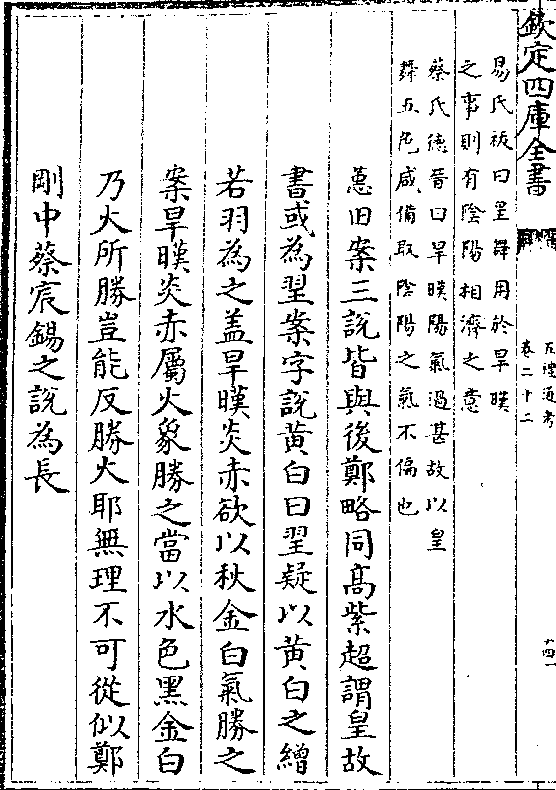 欽定四庫全書
五禮通考
卷二十二
易氏祓曰皇舞用於旱暵
之事則有陰陽相濟之意
蔡氏德晉曰旱暵陽氣過甚故以皇
舞五色咸備取陰陽之氣不偏也
蕙田案三說皆與後鄭略同髙紫超謂皇故
書或為翌案字說黄白曰翌疑以黄白之繒
若羽為之盖旱暵炎赤欲以秋金白氣勝之
案旱暵炎赤屬火象勝之當以水色黑金白
乃火所勝豈能反勝火耶無理不可從似鄭
剛中蔡宸錫之說為長